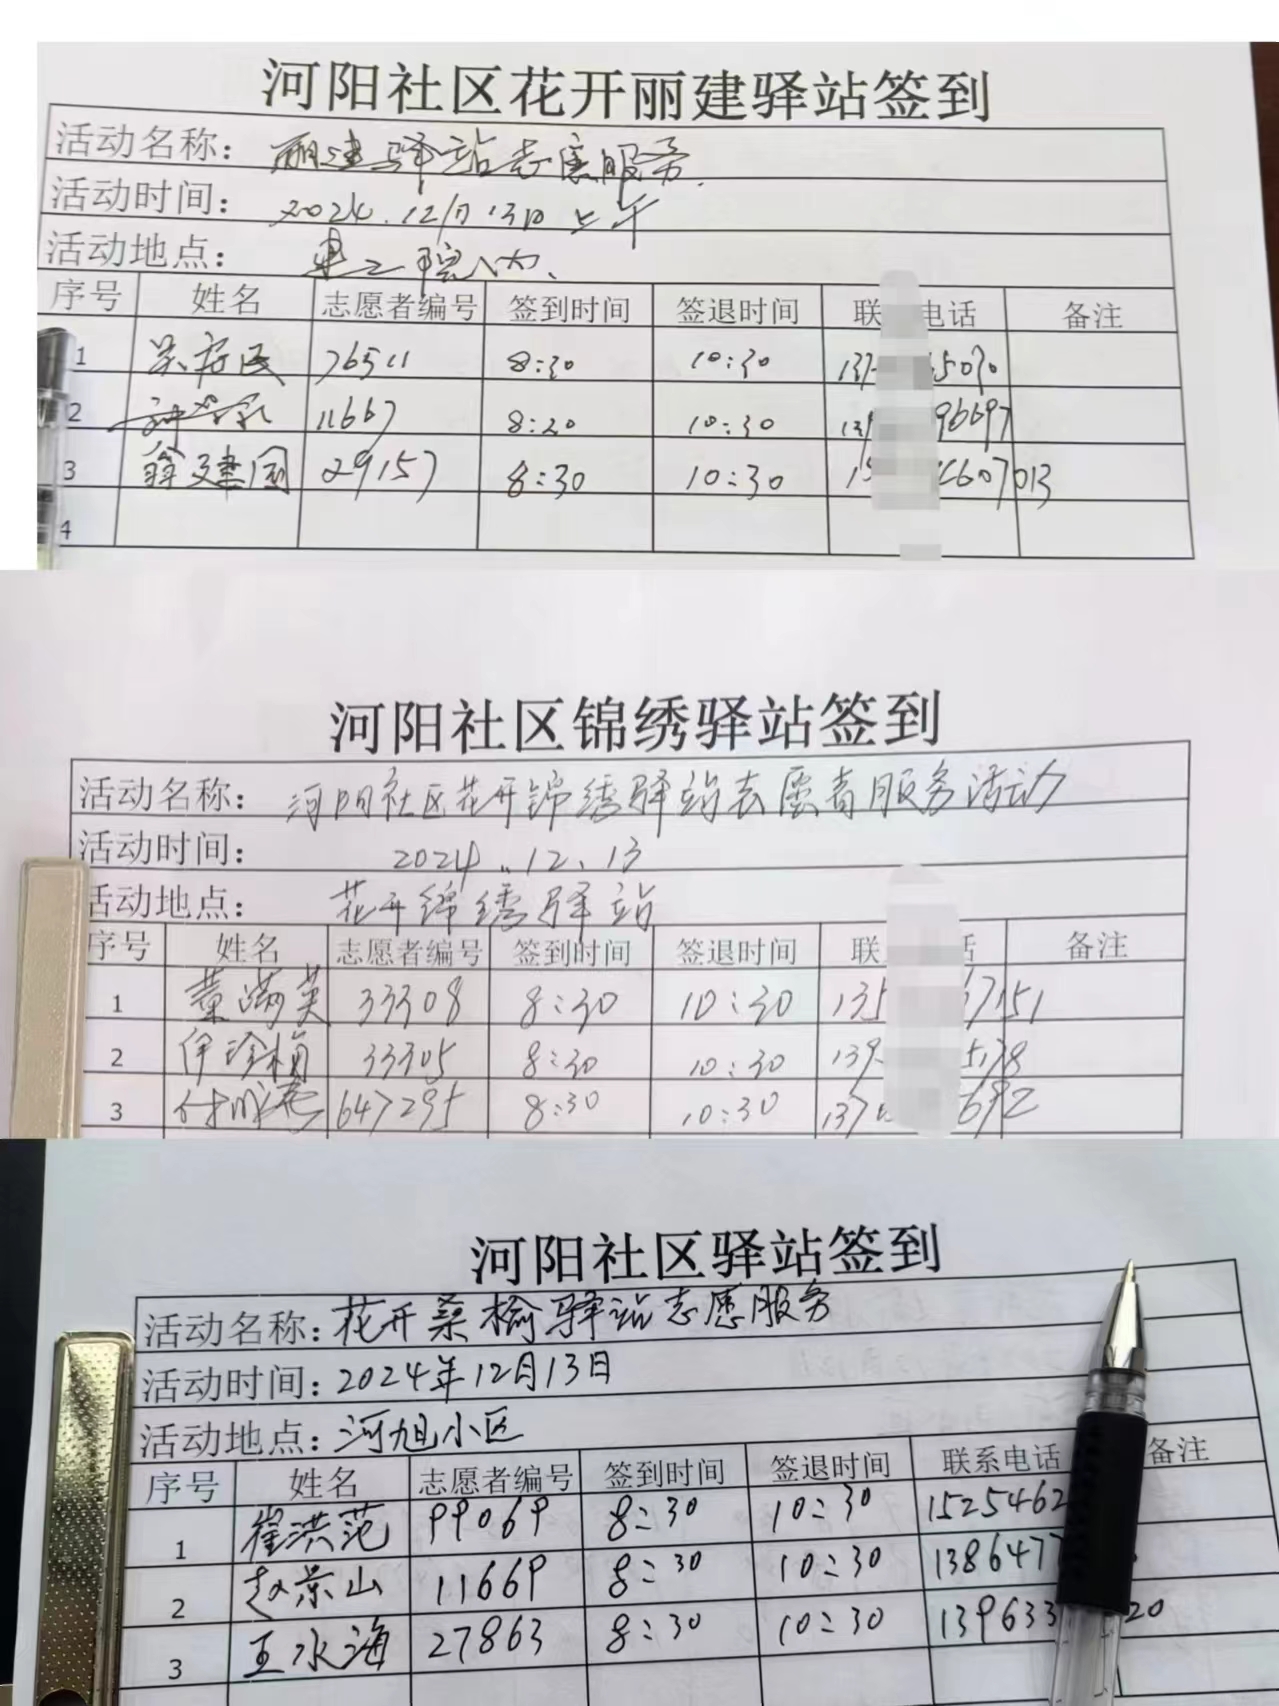 河阳社区花开丽建驿站签到
活动名称： 丽建驿站志愿服务.
活动时间： 2024.12月13日上午
活动地点： 院内、
序号 姓名 志愿者编号 签到时间 签退时间 联 电话 备注
1 吴存民 76511 8:30 10:30 137 5070
2 11667 8:20 10:30 139 96697
3 翁建国 29157 8:30 10:30 15 2607013
4
河阳社区锦绣驿站签到
活动名称： 河阳社区花开锦绣驿站志愿者服务活动
活动时间： 2024.12、13
活动地点： 花开锦绣驿站
序号 姓名 志愿者编号 签到时间 签退时间 联 话 备注
1 董满英 33308 8:30 10:30 135 7151
2 伊珍楨 33305 8:30 10:30 139 5178
3 647295 8:30 10:30 137 692
河阳社区驿站签到
活动名称：花开桑榆驿站志愿服务
活动时间：2024年12月13日
活动地点：河旭小区
序号 姓名 志愿者编号 签到时间 签退时间 联系电话 备注
1 崔洪范 99069 8:30 10:30 1525462
2 赵景山 11669 8:30 10:30 1386477
3 王水海 27863 8:30 10:30 139633 20